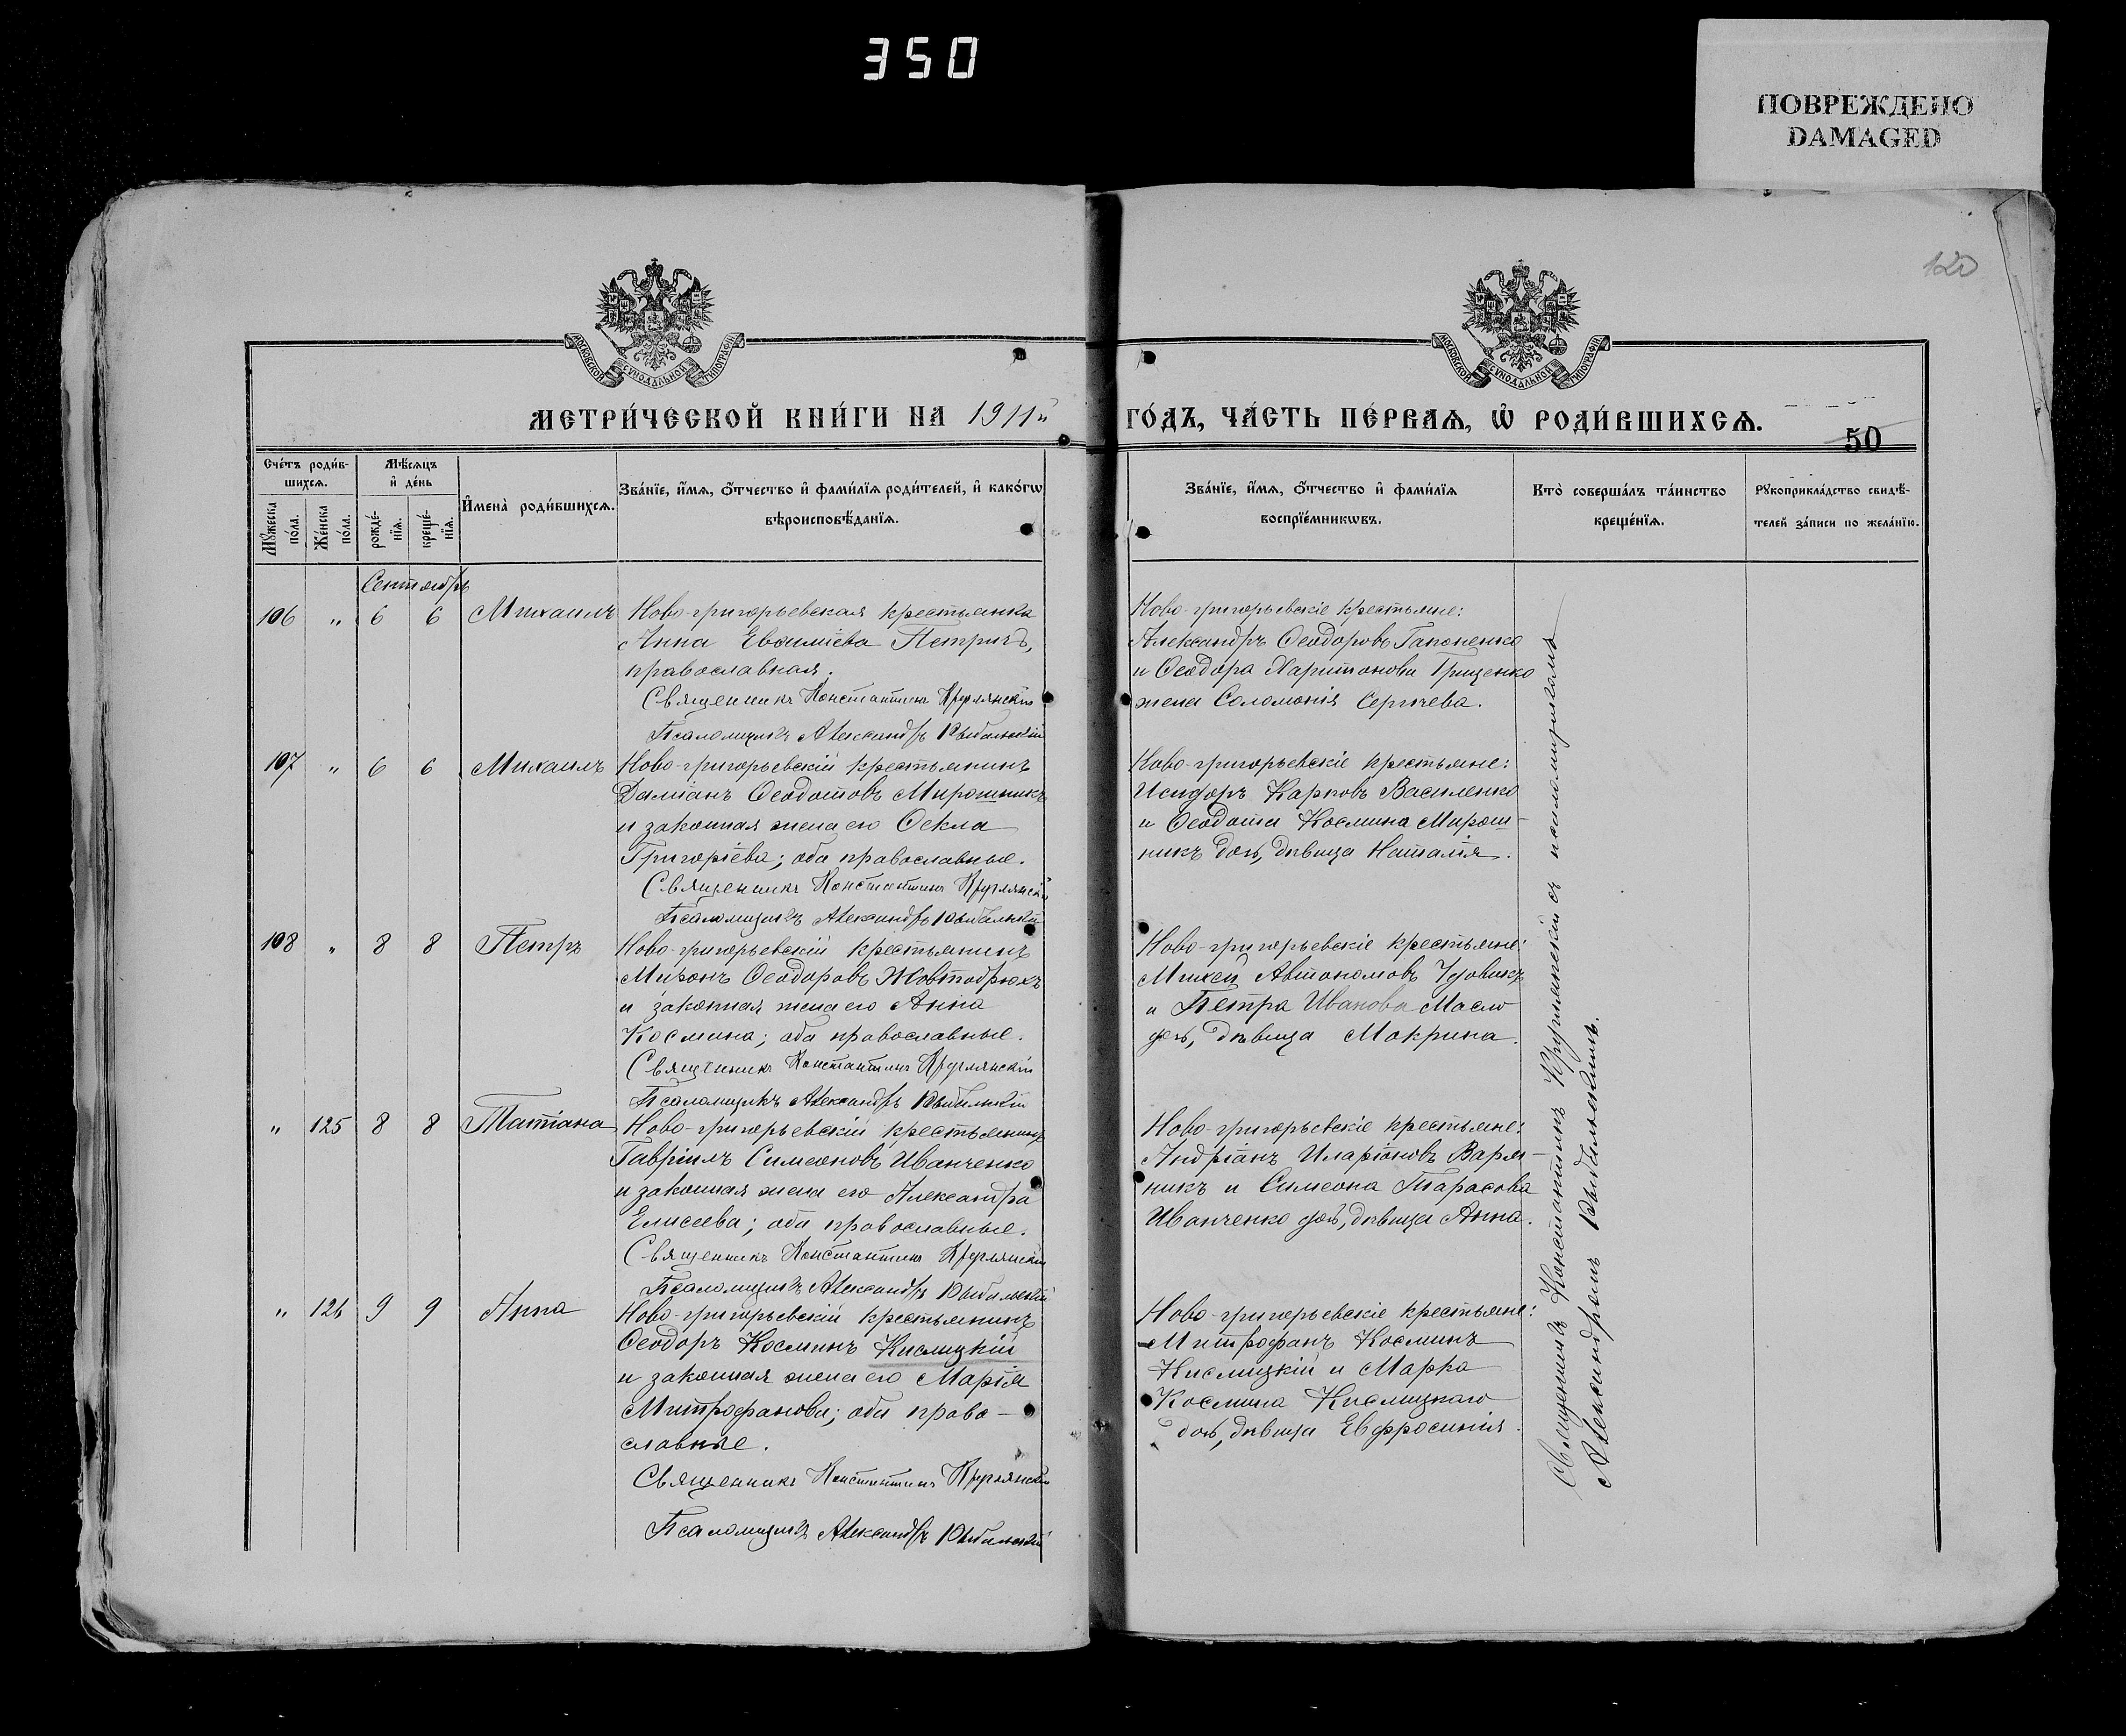 350
ПОВРЕЖДЕНО
DAMAGED
120
МОСКОВСКОЙ СУНОДАЛЬНОЙ ТИПОГРАФІИ
МОСКОВСКОЙ СУНОДАЛЬНОЙ ТИПОГРАФІИ
МЕТРИ́ЧЕСКОЙ КНИ́ГИ НА 1911й
ГО́ДЪ, ЧА́СТЬ ПЕ́РВАѦ, Ѡ҆ РОДИ́ВШИХСѦ.
50
Сче́тъ роди́в-
шихсѧ.
Мѣ́сѧцъ
и҆ де́нь
Мꙋ́жеска
по́ла.
Же́нска
по́ла.
рожде́-
нїѧ.
креще́-
нїѧ.
И҆мена̀ роди́вшихсѧ.
Зва́нїе, и҆́мѧ, ѻ҆́тчество и҆ фами́лїѧ роди́телей, и҆ како́гѡ
вѣроисповѣ́данїѧ.
Зва́нїе, и҆́мѧ, ѻ҆́тчество и҆ фами́лїѧ
воспрїе́мникѡвъ.
Кто̀ соверша́лъ та́инство
креще́нїѧ.
Рꙋкоприкла́дство свидѣ́-
телей за́писи по жела́нїю.
Сентябрь
106 " 6 6 Михаилъ Ново-григорьевская крестьянка
Анна Евѳиміева Петричъ,
православная.
Священникъ Константинъ Круглянскій
Псаломщикъ Александръ
Ново-григорьевскіе крестьяне:
Александръ Ѳеодоровъ Гапоненко
и Ѳеодора Харитонова Грищенко
жена Соломонія Сергіева.
107 " 6 6 Михаилъ Ново-григорьевскій крестьянинъ
Даміанъ Ѳеодотовъ Мирошникъ
и законная жена его Ѳекла
Григоріева; оба православные.
Священникъ Константинъ Круглянскій
Псаломщикъ Александръ
Ново-григорьевскіе крестьяне:
Исидоръ Карповъ Василенко
и Ѳеодота Космина Мирош-
никъ дочь, дѣвица Наталія.
108 " 8 8 Петръ Ново-григорьевскій крестьянинъ
Миронъ Ѳеодоровъ Жовтобрюхъ
и законная жена его Анна
Космина; оба православные.
Священникъ Константинъ Круглянскій
Псаломщикъ Александръ
Ново-григорьевскіе крестьяне:
Михей Автономовъ Удовикъ
и Петра Иванова Масло
дочь, дѣвица Макрина.
" 125 8 8 Татіана Ново-григорьевскій крестьянинъ
Гавріилъ Симеоновъ Иванченко
и законная жена его Александра
Елисеева; оба православные.
Священникъ Константинъ Круглянскій
Псаломщикъ Александръ
Ново-григорьевскіе крестьяне:
Андріанъ Иларіоновъ Варя-
никъ и Симеона Тарасова
Иванченко дочь, дѣвица Анна.
" 126 9 9 Анна Ново-григорьевскій крестьянинъ
Ѳеодоръ Косминъ Кислицкій
и законная жена его Марія
Митрофанова; оба право-
славные.
Священникъ Константинъ Круглянскій
Псаломщикъ Александръ
Ново-григорьевскіе крестьяне:
Митрофанъ Косминъ
Кислицкій и Марка
Космина Кислицкаго
дочь, дѣвица Евфросинія.
Священникъ Константинъ Круглянскій съ псаломщикомъ
Александромъ